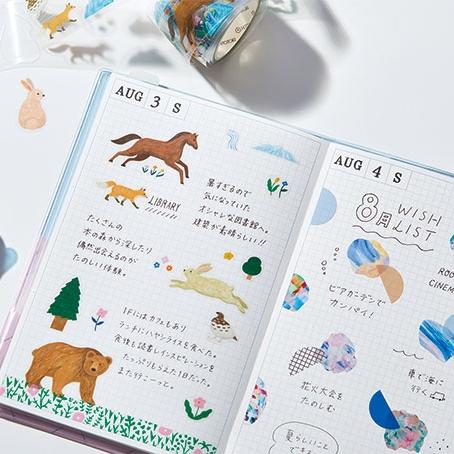 AUG 3 S
暑すぎるので
気になっていた
オシャレな図書館へ。
建築が素晴らしい!!
LIBRARY
たくさんの
本の森から探したり
偶然出会えるのが
たのしい体験。
1Fにはカフェもあり
ランチにハヤシライスを食べた。
食後も読書しインスピレーションを
たっぷりもらえた1日だった。
また行こーっと。
AUG 4 S
8月 WISH
LIST
ビアガーデンで
カンパイ!
ROO
CINEM
花火大会を
たのしむ
車で海に
行く
夏らしいこと
できる